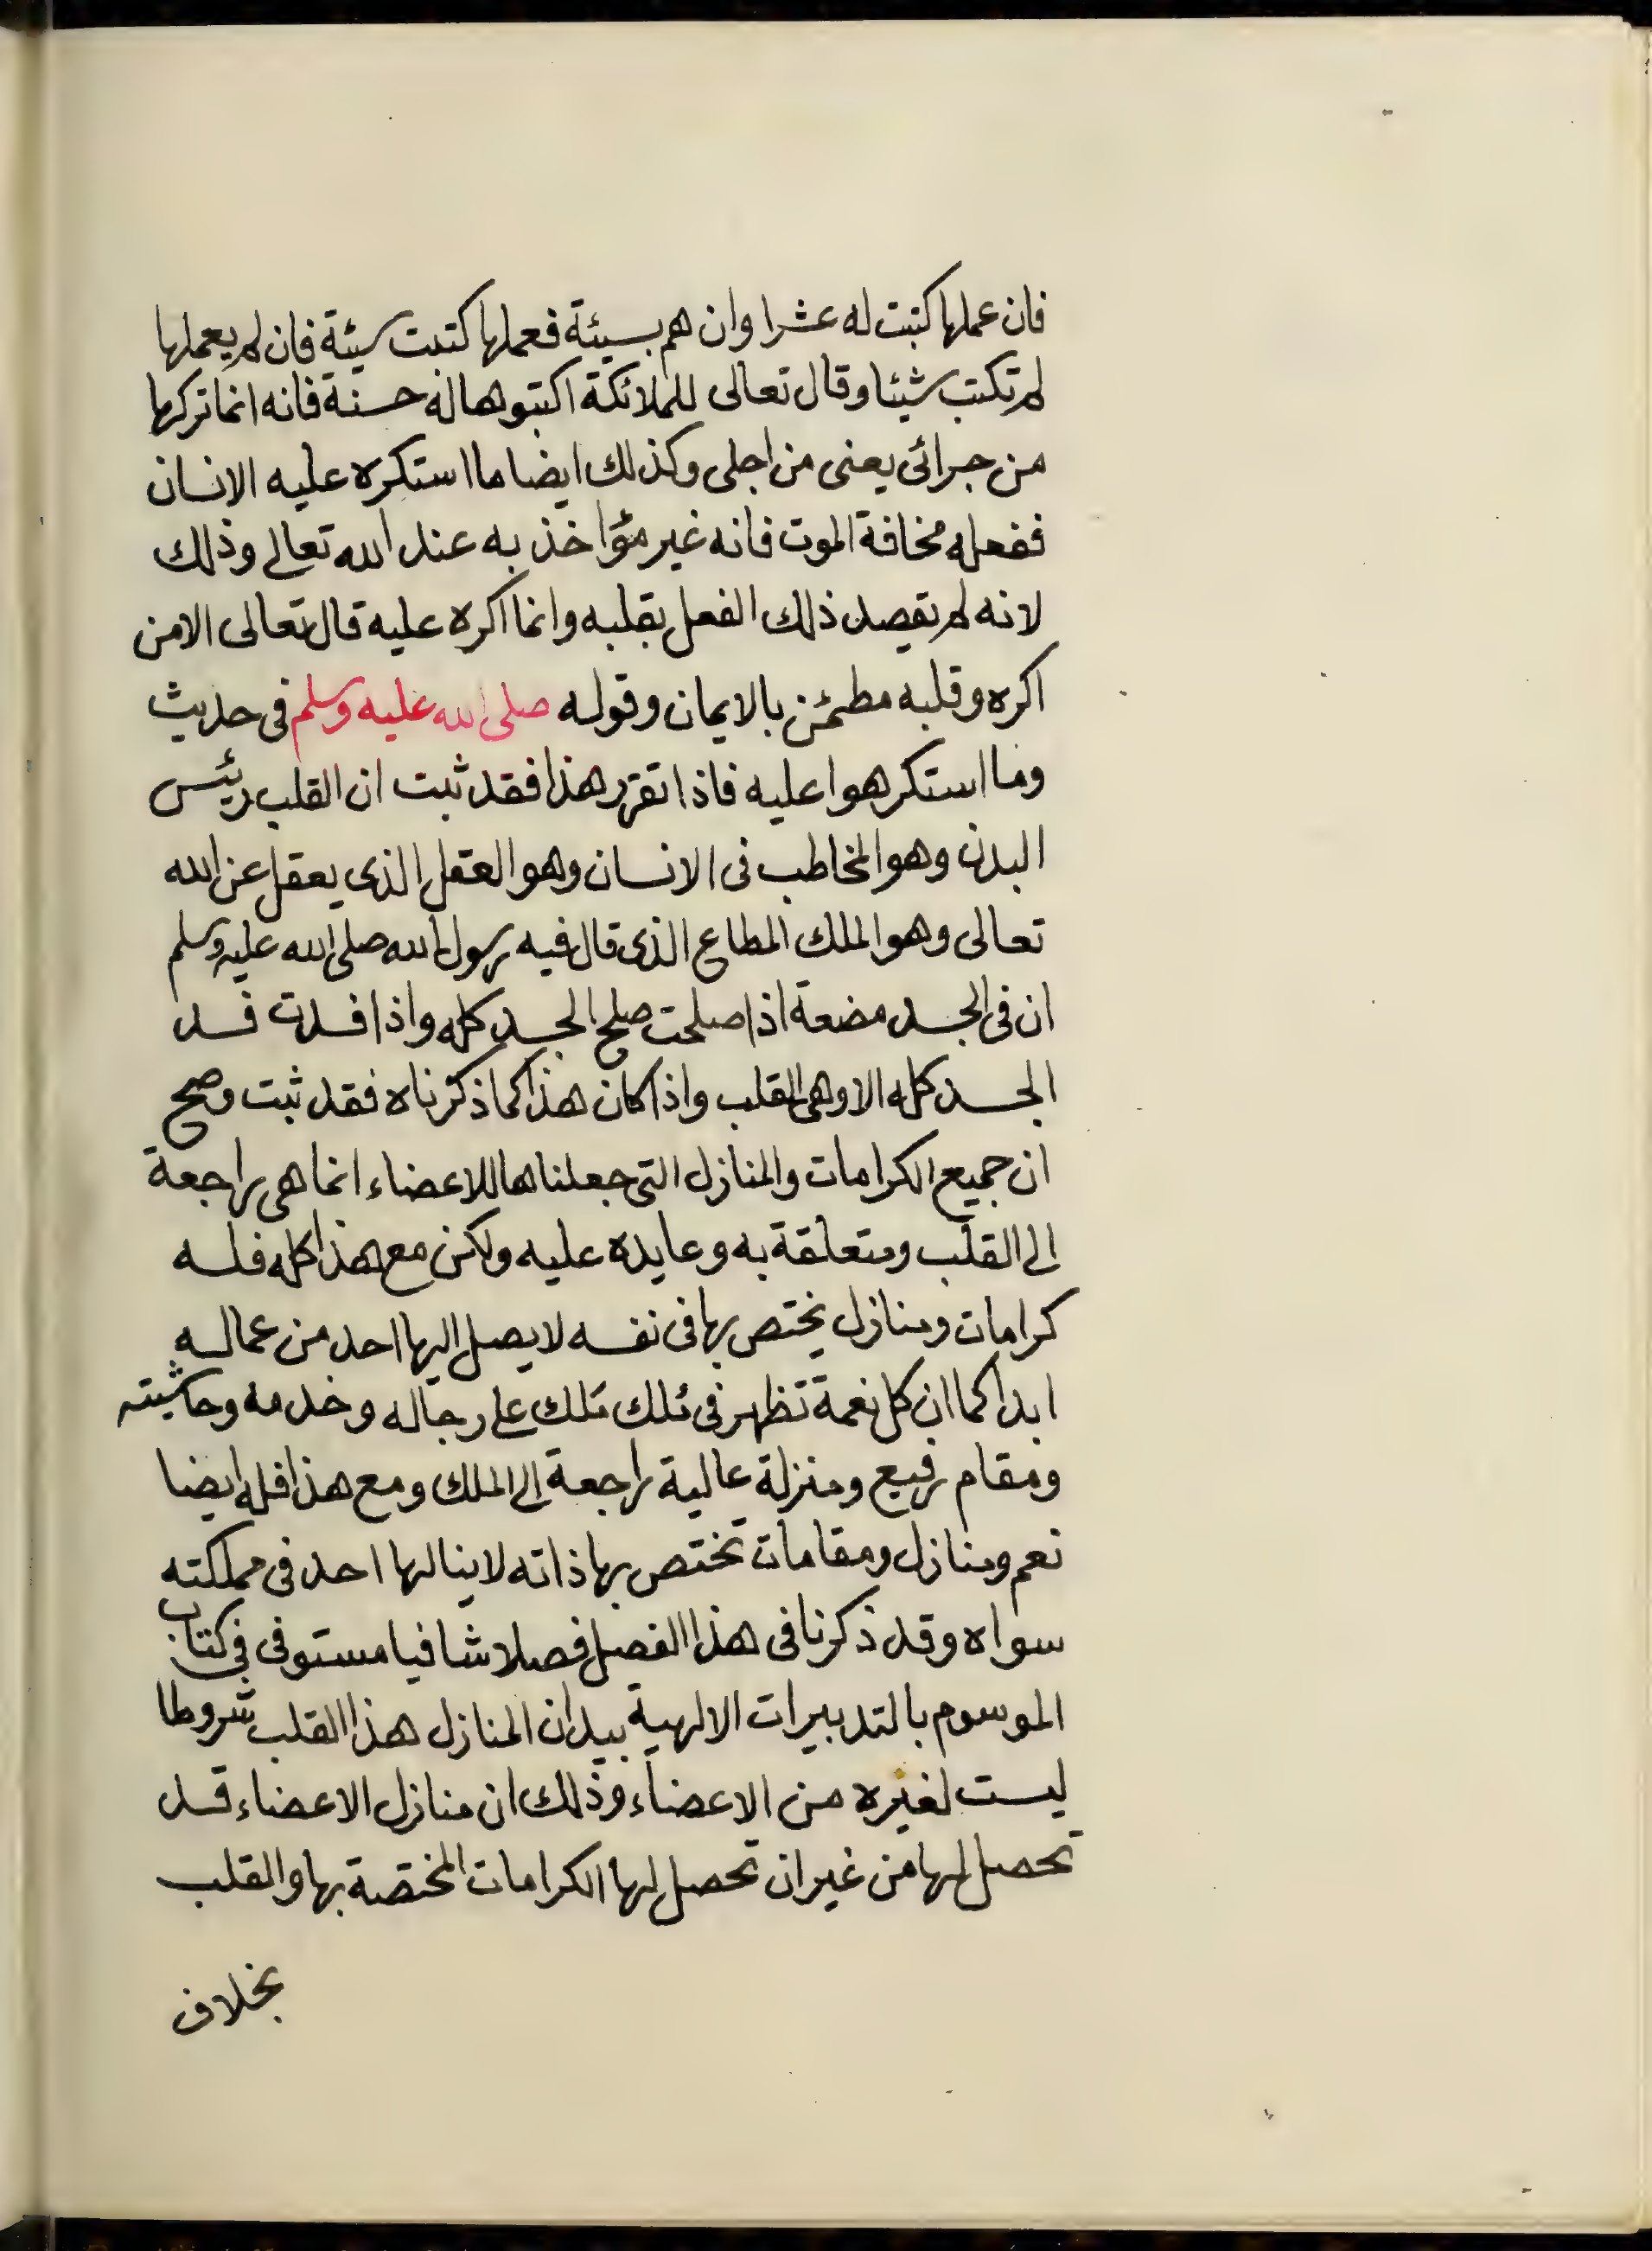 فان عملها كتبت له عشرا وان هم بسيئة فعملها كتبت سيئة فان لم يعملها
لم تكتب شيئا وقال تعالى للملائكة اكتبوها له حسنة فانه انما تركها
من جرائى يعنى من اجلى وكذلك ايضا ما استكره عليه الانسان
ففعله مخافة الموت فانه غير مؤاخذ به عند الله تعالى وذلك
لانه لم يقصد ذلك الفعل بقلبه وانما اكره عليه قال تعالى الا من
اكره وقلبه مطمئن بالايمان وقوله صلى الله عليه وسلم فى حديث
وما استكرهوا عليه فاذا تقرر هذا فقد ثبت ان القلب رئيس
البدن وهو المخاطب فى الانسان وهو العقل الذى يعقل عن الله
تعالى وهو الملك المطاع الذى قال فيه رسول الله صلى الله عليه وسلم
ان فى الجسد مضغة اذا صلحت صلح الجسد كله واذا فسدت فسد
الجسد كله الا وهى القلب واذا كان هذا كما ذكرناه فقد ثبت وصح
ان جميع الكرامات والمنازل التى جعلناها للاعضاء انما هى راجعة
الى القلب ومتعلقة به وعايده عليه ولكن مع هذا كله فله
كرامات ومنازل يختص بها فى نفسه لا يصل اليها احد من عماله
ابدا كما ان كل نعمة تظهر فى ملك ملك على رجاله وخدمه وحاشيته
ومقام رفيع ومنزلة عالية راجعة الى الملك ومع هذا فله ايضا
نعم ومنازل ومقامات تختص بها ذاته لا ينالها احد فى مملكته
سواه وقد ذكرنا فى هذا الفصل فصلا شافيا مستوفى فى كتاب
الموسوم بالتدبيرات الالهية بيد ان المنازل هذا القلب شروطا
ليست لغيره من الاعضاء وذلك ان منازل الاعضاء قد
تحصل لها من غير ان تحصل لها الكرامات المختصة بها والقلب
بخلاف